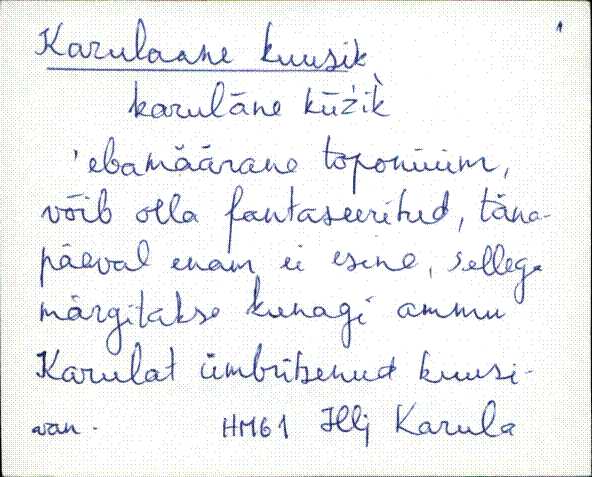 Karulaane kuusik
karulāne kūžik̀
'ebamäärane toponüüm,
võib olla fantaseeritud, täna-
päeval enam ei esine, sellega
märgitakse kunagi ammu
Karulat ümbritsenud kuusi-
HM61 Hlj Karula